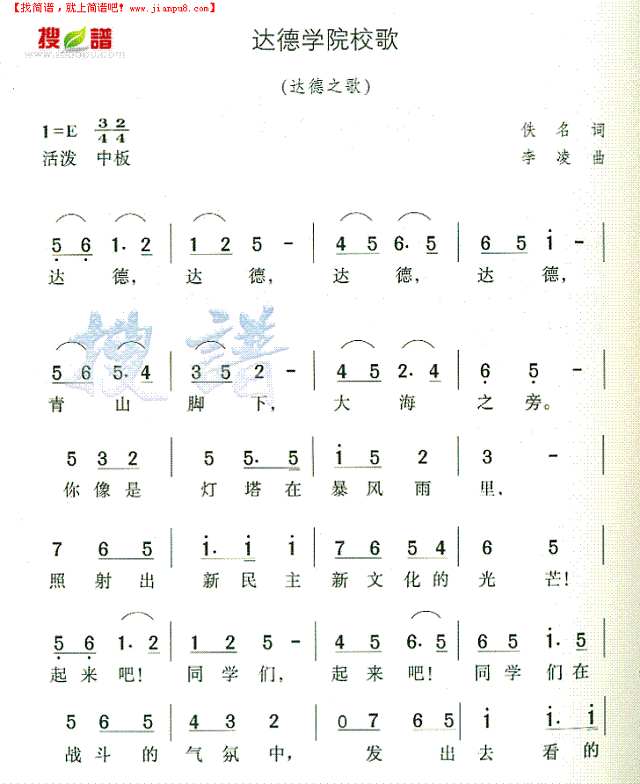 【找简谱，就上简谱吧! www.jianpu8.com】
搜谱
www.sooopu.com
达德学院校歌
(达德之歌)
1=E 3/4 2/4
佚名 词
活泼 中板
李凌 曲
5 6 1. 2 | 1 2 5 - | 4 5 6. 5 | 6 5 i -
达 德， 达 德， 达 德， 达 德，
5 6 5. 4 | 3 5 2 - | 4 5 2. 4 | 6 5
青 山 脚 下， 大 海 之 旁。
5 3 2 | 5 5. 5 | i 5 2 | 3 -
你 像是 灯 塔 在 暴 风 雨 里，
7 6 5 | i. i i | 7 6 5 4 | 6 5
照 射 出 新 民 主 新 文 化 的 光 芒!
5 6 1. 2 | 1 2 5 - | 4 5 6. 5 | 6 5 i. 5
起 来 吧! 同 学 们， 起 来 吧! 同 学 们 在
5 6 5 | 4 3 2 | 0 7 6 5 | i i. i
战 斗 的 气 氛 中， 发 出 去 看 的
搜谱